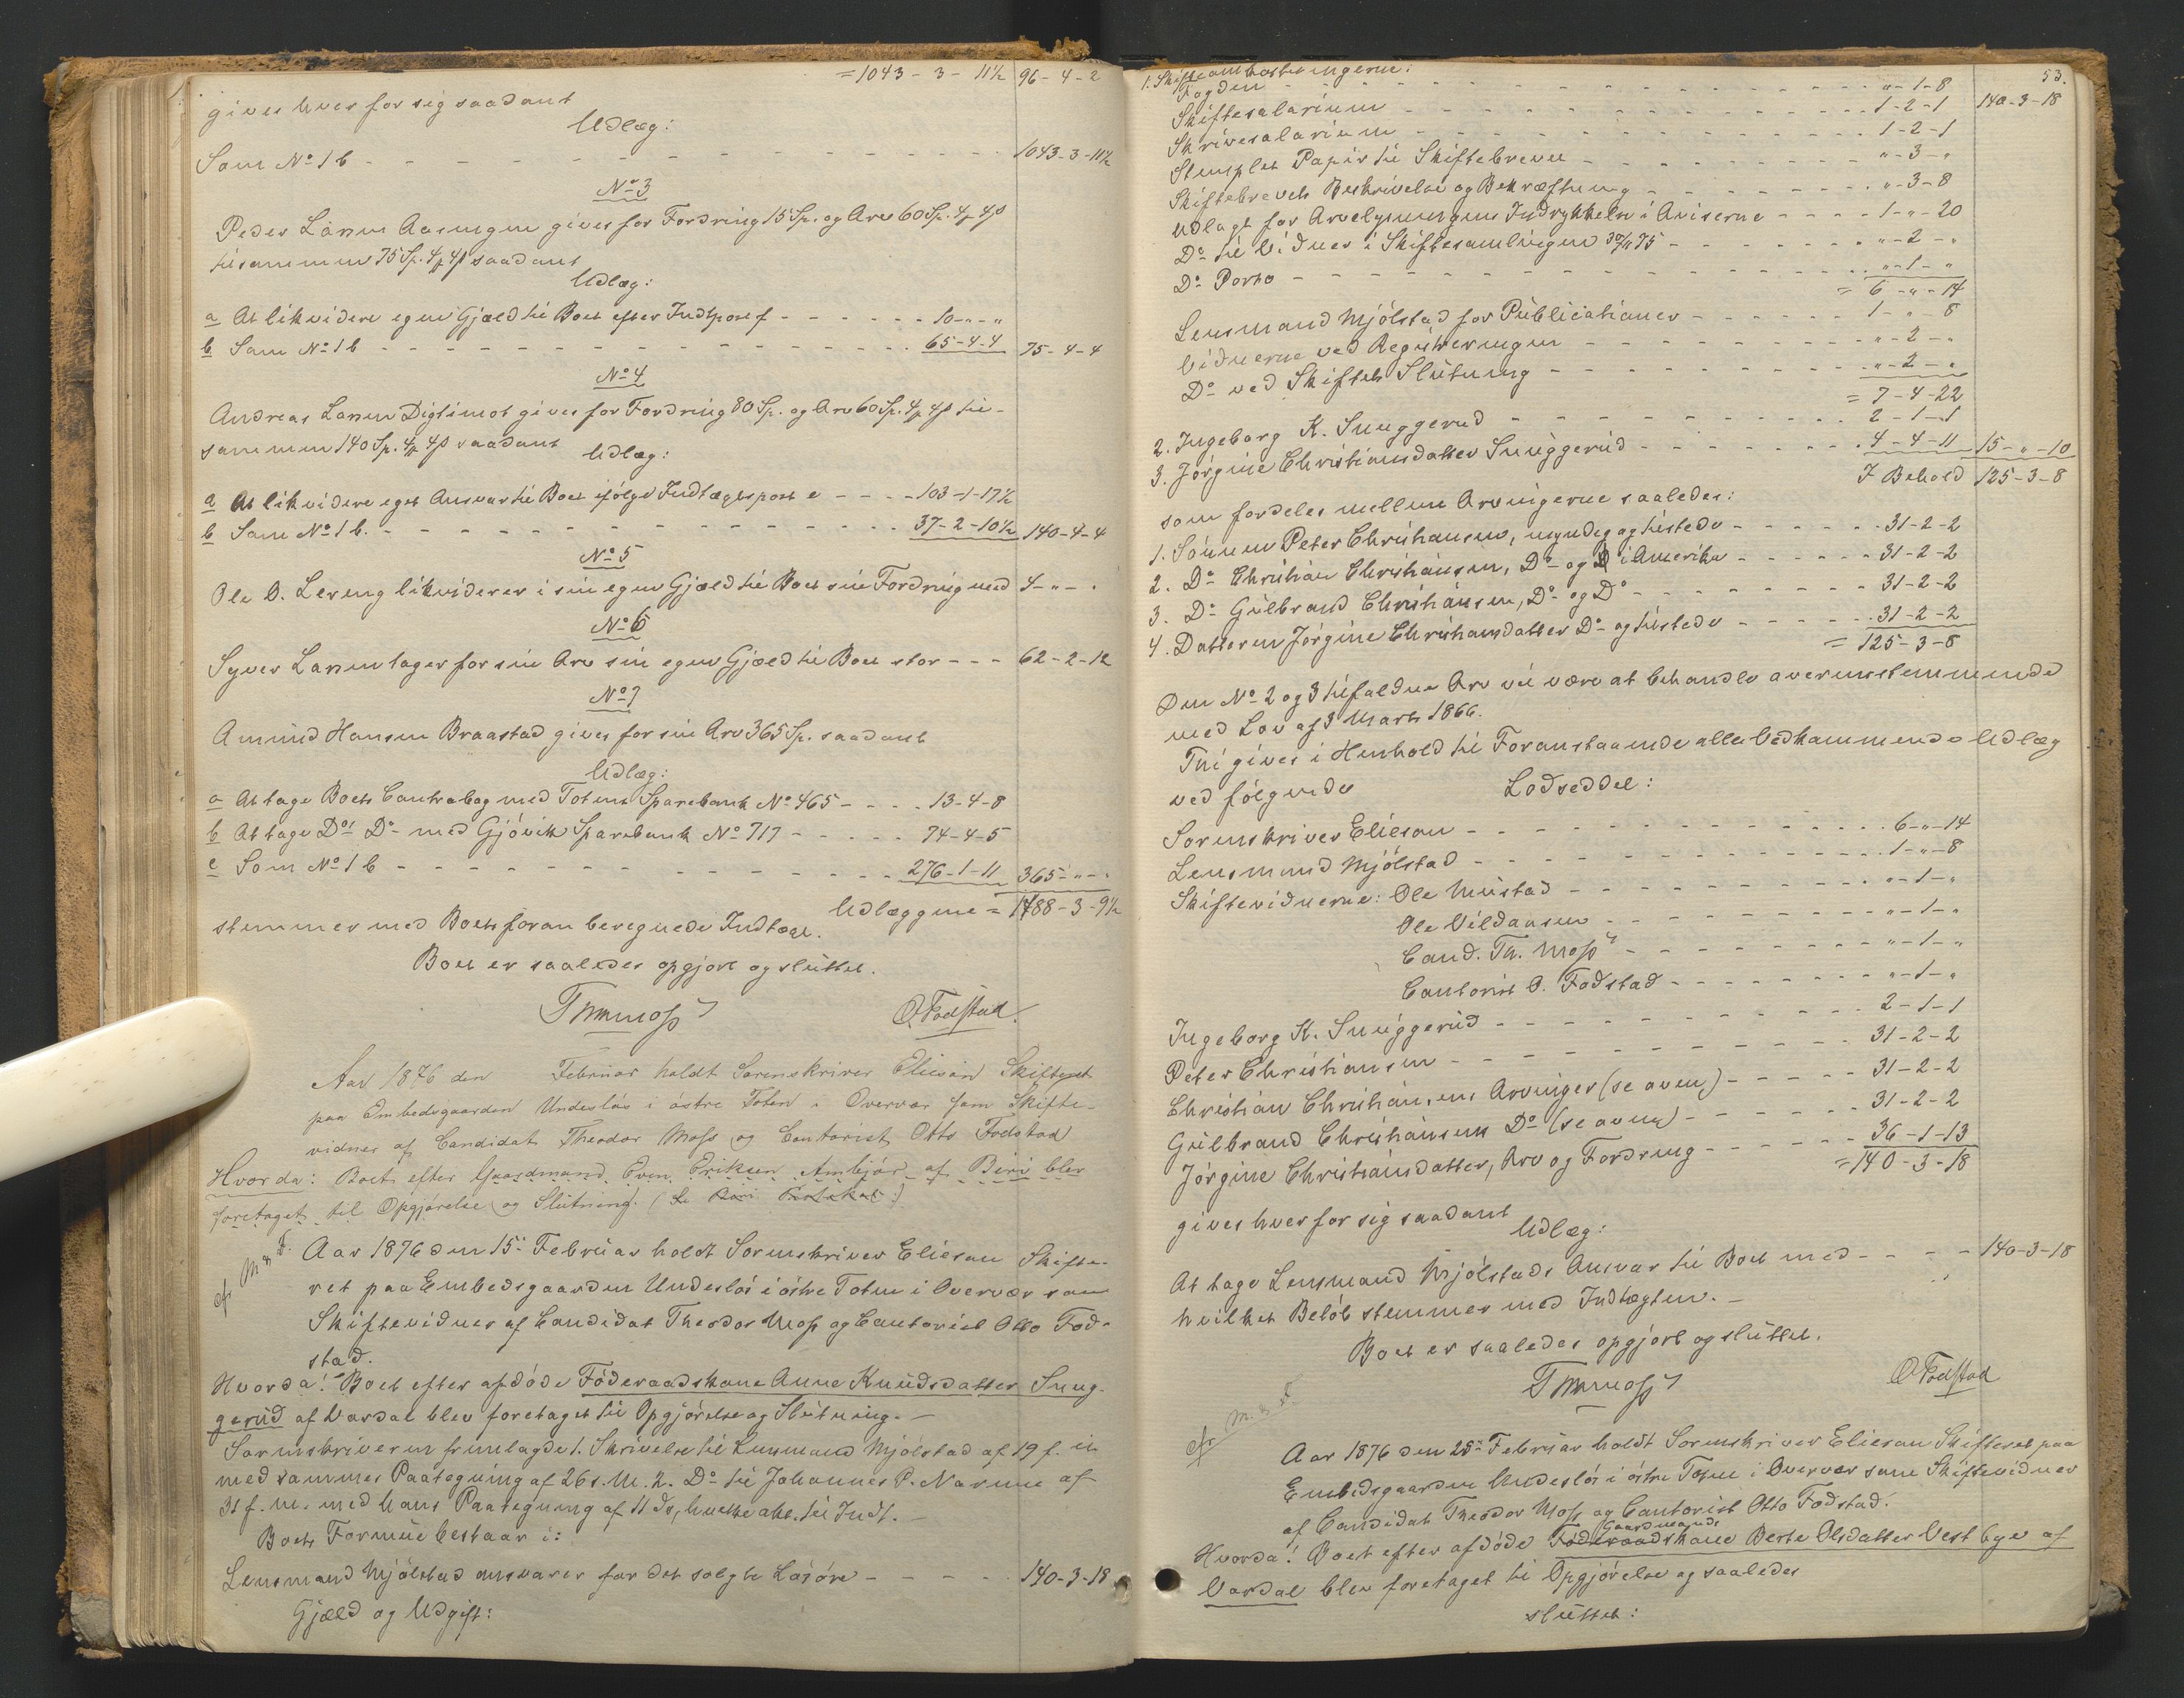 = 1043 - 3 - 11½ 96 - 4 - 2
gives hver for sig saadant
Udlæg:
Som No 1 b - - - 1043-3-11½
No 3
Peder Larsen Aasengen gives for Fordring 15 Sp. og Arv 60 Sp. 4 ₰ 4 β
tilsammen 75 Sp. 4 ₰ 4 β saadant
Udlæg:
a At likvidere egen Gjæld til Boet efter Indtpost f - - - 10 - " - "
b Som No 1 b - - - 65-4-4 75-4-4
No 4
Andreas Larsen Digtimot gives for Fordring 80 Sp. og Arv 60 Sp. 4 ₰ 4 β til-
sammen 140 Sp. 4 ₰ 4 β saadant
Udlæg:
a At likvidere eget Ansvar til Boet ifølge Indtægtspost e - - - 103-1-17½
b Som No 1 b. - - - 37-2-10½ 140-4-4
No 5
Ole O. Lereng likviderer i sin egen Gjæld til Boet sin Fordring med 4 - " - "
No 6
Syver Larsen tager for sin Arv sin egen Gjæld til Boet stor - - - 62-2-12
No 7
Amund Hansen Braastad gives for sin Arv 365 Sp. saadant
Udlæg:
a At tage Boets Contrabog med Totens Sparebank No 465 - - - 13-4-8
b At tage Do's Do med Gjøvik Sparebank No 717 - - - 74-4-5
c Som No 1 b - - - 276-1-11 365 - " - "
Udlæggene = 1788-3-9½
stemmer med Boets foran beregnede Indtægt.
Boet er saaledes opgjort og sluttet.
Th Moss OFodstad.
Aar 1876 den Februar holdt Sorenskriver Elieson Skifteret
paa Embedsgaarden Undeslös i östre Toten i Overvær som Skifte-
vidner af Candidat Theodor Moss og Contorist Otto Fodstad
Hvorda: Boet efter Gaardmand Even Eriksen Ambjör af Biri blev
foretaget til Opgjørelse og Slutning. (Se Biri Protokol)
cfr. M & F.
Aar 1876 den 15de Februar holdt Sorenskriver Elieson Skifte-
ret paa Embedsgaarden Undeslös i östre Toten i Overvær som
Skiftevidner af Candidat Theodor Moss og Contorist Otto Fod-
stad.
Hvorda! Boet efter afdøde Föderaadskone Anne Knudsdatter Snug-
gerud af Vardal blev foretaget til Opgjørelse og Slutning. -
Sorenskriveren fremlagde 1. Skrivelse til Lensmand Mjölstad af 19 f.
med sammes Paategning af 26 s. M. 2. Do til Johannes P. Narum af
31 f. M. med hans Paategning af 11 ds, hvilke akt. til Indt. -
Boets Formue bestaar i:
Lensmand Mjölstad ansvarer for det solgte Lösöre - - - 140-3-18
Gjæld og Udgift:
53.
1. Skifteomkostningerne: 140-3-18
Fogden - - - " - 1-8
Skiftesalarium - - - 1-2-1
Skriversalarium - - - 1-2-1
Stemplet Papir til Skiftebrevet - - - " - 3 - "
Skiftebrevets Beskrivelse og Bekræftning - - - " - 3-8
Udlagt for Arvelysningens Indrykkelse i Aviserne - - - 1 - " - 20
Do til Vidner i Skiftesamlingen 30/11 75 - - - " - 2 - "
Do Porto - - - " - 1 - "
= 6 - " - 14
Lensmand Mjölstad for Publicationer - - - 1 - " - 8
Vidnerne ved Registreringen - - - " - 2 - "
Do ved Skiftets Slutning - - - " - 2 - "
= 7-4-22
2. Ingeborg K. Snuggerud - - - 2-1-1
3. Jörgine Christiansdatter Snuggerud - - - 4-4-11 15 - " - 10
I Behold 125-3-8
som fordeles mellem Arvingerne saaledes:
1. Sönnen Peter Christiansen, myndig og tilstede - - - 31-2-2
2. Do Christian Christiansen, Do og i Amerika - - - 31-2-2
3. Do Gulbrand Christiansen, Do og Do - - - 31-2-2
4. Datteren Jörgine Christiansdatter Do og tilstede - - - 31-2-2
= 125-3-8
Den No 2 og 3 tilfaldne Arv vil være at behandle overensstemmende
med Lov af 3 Marts 1866.
Thi gives i Henhold til Foranstaaende alle Vedkommende Udlæg
ved følgende Lodseddel:
Sorenskriver Elieson - - - 6 - " - 14
Lensmand Mjölstad - - - 1 - " - 8
Skiftevidnerne: Ole Mustad - - - " - 1 - "
Ole Vildåsen - - - " - 1 - "
Cand. Th. Moss - - - " - 1 - "
Contorist O. Fodstad - - - " - 1 - "
Ingeborg K. Snuggerud - - - 2-1-1
Peter Christiansen - - - 31-2-2
Christian Christiansens Arvinger (se oven) - - - 31-2-2
Gulbrand Christiansens Do (se oven) - - - 31-2-2
Jörgine Christiansdatter, Arv og Fordring - - - 36-1-13
= 140-3-18
gives hver for sig saadant
Udlæg:
At tage Lensmand Mjölstads Ansvar til Boet med - - - 140-3-18
hvilket Belöb stemmer med Indtægten. -
Boet er saaledes opgjort og sluttet.
Th Moss OFodstad
cfr M. & F
Aar 1876 den 25de Februar holdt Sorenskriver Elieson Skifteret paa
Embedsgaarden Undeslös i östre Toten i Overvær som Skiftevidner
af Candidat Theodor Moss og Contorist Otto Fodstad.
Gaardmands
Hvorda! Boet efter afdøde Föderaadskone Berte Olsdatter Vestbye af
Vardal blev foretaget til Opgjørelse og saaledes
sluttet: